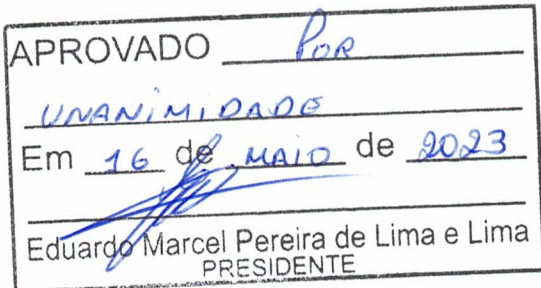 APROVADO POR
UNANIMIDADE
Em 16 de MAIO de 2023
Eduardo Marcel Pereira de Lima e Lima
PRESIDENTE